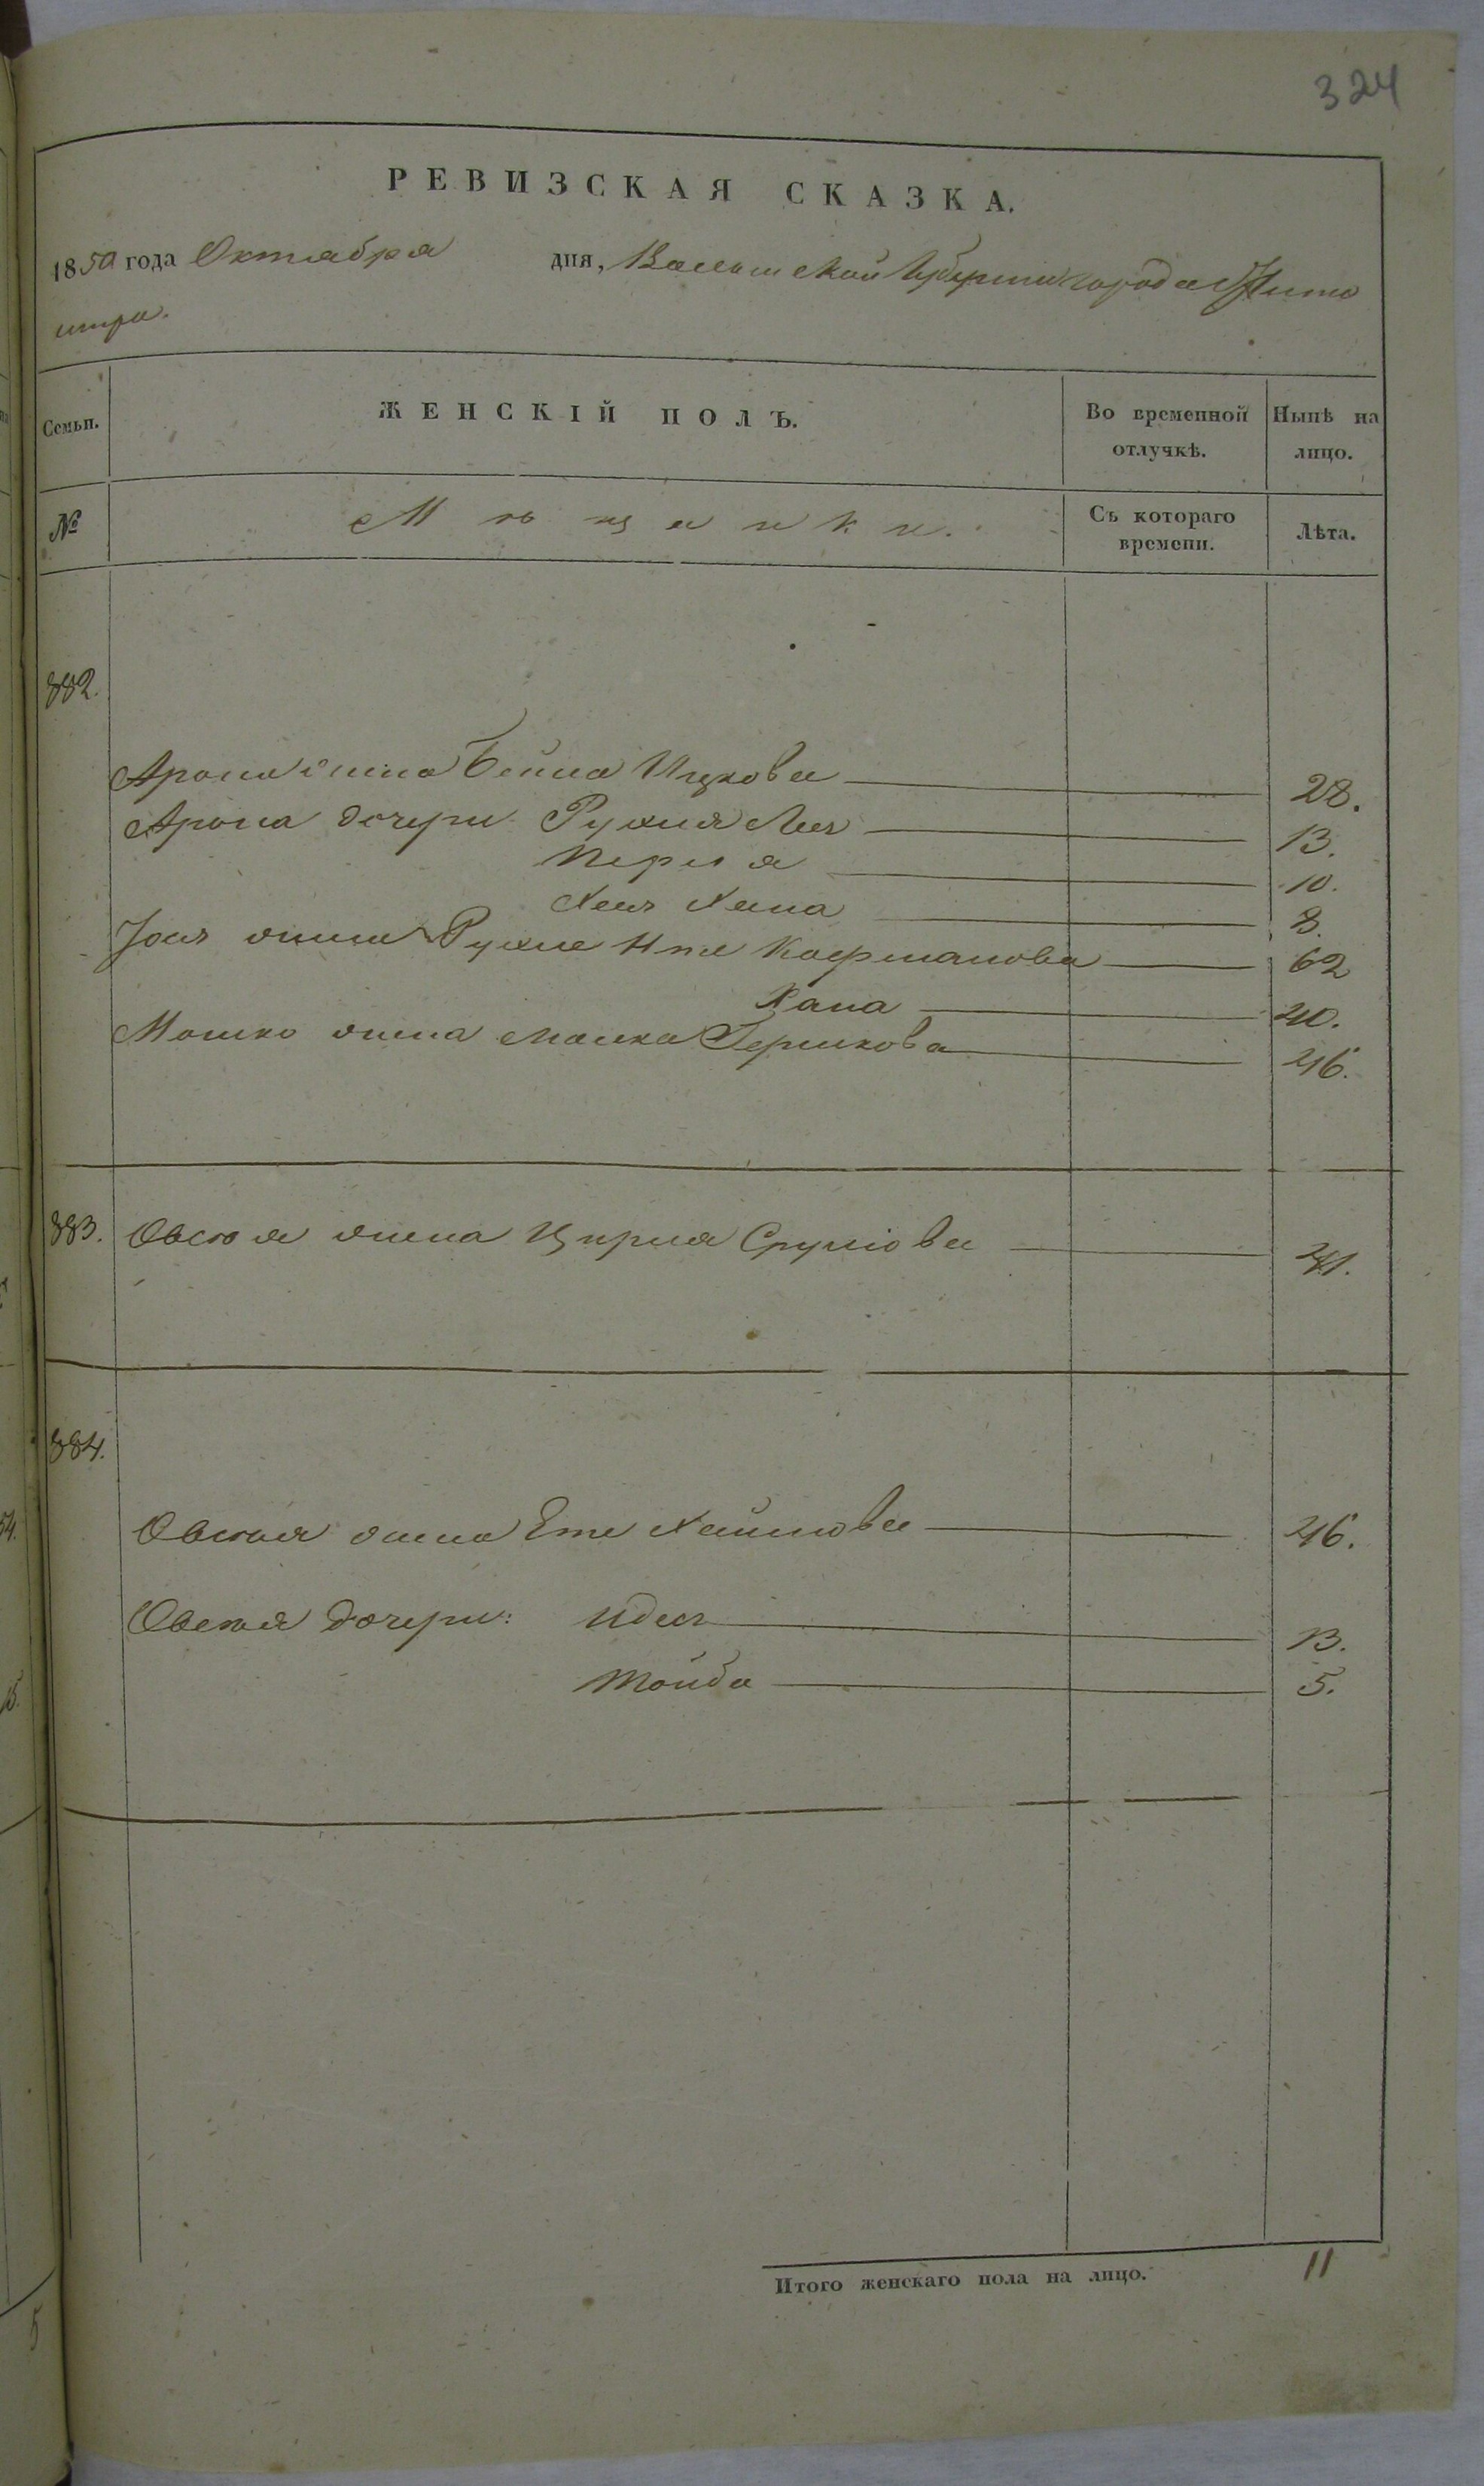 324
РЕВИЗСКАЯ СКАЗКА.
1850 года Октября дня, Волынской Губернии города Жито
мира.
Семьи. ЖЕНСКІЙ ПОЛЪ. Во временной отлучкѣ. Нынѣ на лицо.
№ Мѣщанки. Съ котораго времени. Лѣта.
882.
Арона жена Бейла Ицкова 28.
Арона дочери Рухля Лея 13.
Перля 10.
Хая Хана 8.
жена Рухля Ита Кофманова 62
Хана 40.
Мошко жена Малка Гершкова 46.
883. Овсея жена Цирля Срулiова 41.
884.
Овсея жена Етя Хаимова 46.
Овсея дочери: Идес 13.
Тойба 5.
Итого женскаго пола на лицо. 11